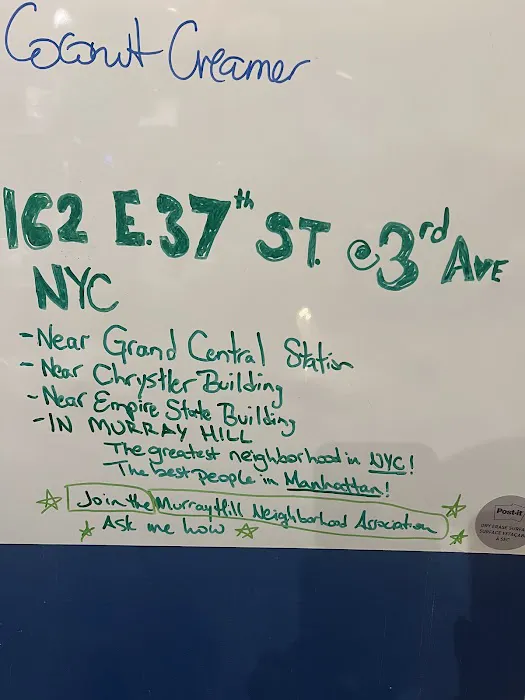 Coconut Creamer
162 E. 37th ST. @ 3rd AVE
NYC
- Near Grand Central Station
- Near Chrystler Building
- Near Empire State Building
- IN MURRAY HILL
The greatest neighborhood in NYC!
The best people in Manhattan!
Join the Murray Hill Neighborhood Association
Ask me how
Post-it
DRY ERASE SURFACE